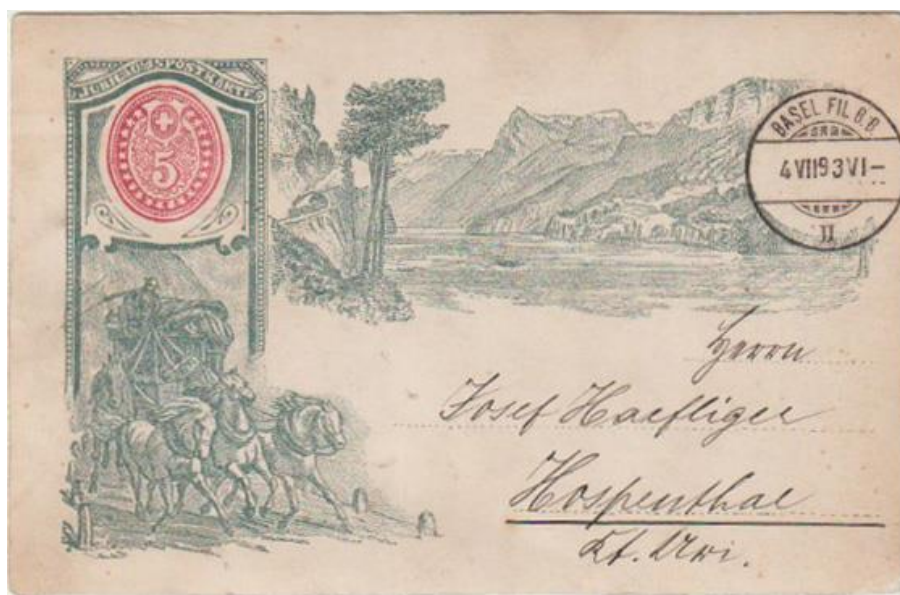 JUBILÄUMSPOSTKARTE
5
BASEL FIL. B.B.
4 VII 93 VI-
II
Herrn
Josef Haefliger
Hospenthal
Kt. Uri.